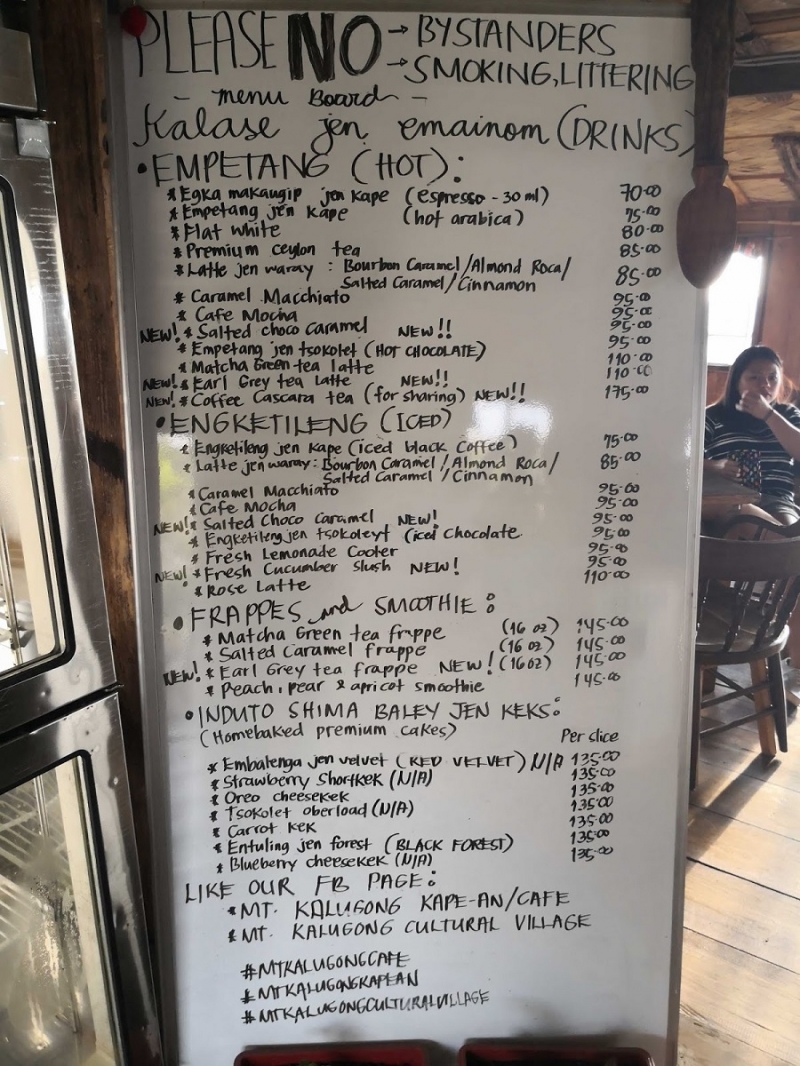 PLEASE NO → BYSTANDERS
→ SMOKING, LITTERING
- menu Board -
Kalase jen emainom (DRINKS)
• EMPETANG (HOT):
* Egka makaugip jen kape (espresso - 30 ml) 70.00
* Empetang jen kape (hot arabica) 75.00
* Flat white 80.00
* Premium ceylon tea 85.00
* Latte jen waray : Bourbon Caramel/Almond Roca/
Salted Caramel/Cinnamon 85.00
* Caramel Macchiato 95.00
* Cafe Mocha 95.00
NEW! * Salted choco caramel NEW!! 95.00
* Empetang jen tsokolet (HOT CHOCOLATE) 95.00
* Matcha Green tea latte 110.00
NEW! * Earl Grey tea Latte NEW!! 110.00
NEW! * Coffee Cascara tea (for sharing) NEW!! 175.00
• ENGKETILENG (ICED)
* Engketileng jen kape (iced black Coffee) 75.00
* Latte jen waray: Bourbon Caramel/Almond Roca/ 85.00
Salted Caramel/Cinnamon
* Caramel Macchiato 95.00
* Cafe Mocha 95.00
NEW! * Salted Choco Caramel NEW! 95.00
* Engketileng jen tsokoleyt (iced Chocolate 95.00
* Fresh Lemonade Cooler 95.00
NEW! * Fresh Cucumber Slush NEW! 95.00
* Rose Latte 110.00
• FRAPPES and SMOOTHIE:
* Matcha Green tea frappe (16 oz) 145.00
* Salted Caramel frappe (16 oz) 145.00
NEW! * Earl Grey tea frappe NEW! (16 oz) 145.00
* Peach, pear & apricot smoothie 145.00
• INDUTO SHIMA BALEY JEN KEKS:
(Homebaked premium cakes) Per slice
* Embalenga jen velvet (RED VELVET) N/A 135.00
* Strawberry Shortkek (N/A) 135.00
* Oreo cheesekek 135.00
* Tsokolet oberload (N/A) 135.00
* Carrot kek 135.00
* Entuling jen forest (BLACK FOREST) 135.00
* Blueberry cheesekek (N/A) 135.00
LIKE OUR FB PAGE:
* MT. KALUGONG KAPE-AN/CAFE
* MT. KALUGONG CULTURAL VILLAGE
#MTKALUGONGCAFE
#MTKALUGONGKAPEAN
#MTKALUGONGCULTURALVILLAGE